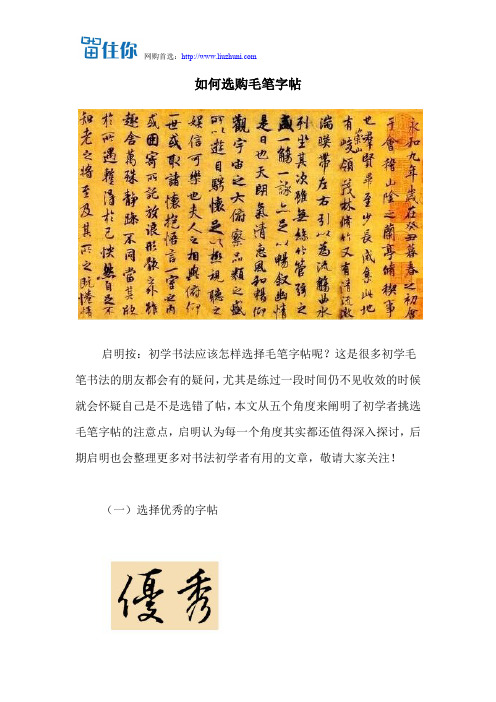 留住你
网购首选：http://www.liuzhuni.com
如何选购毛笔字帖
永和九年歲在癸丑暮春之初會
于會稽山陰之蘭亭脩稧事
也羣賢畢至少長咸集此地
有崇山峻領茂林脩竹又有清流激
湍暎帶左右引以為流觴曲水
列坐其次雖無絲竹管弦之
盛一觴一詠亦足以暢敘幽情
是日也天朗氣清惠風和暢仰
觀宇宙之大俯察品類之盛
所以遊目騁懷足以極視聽之
娛信可樂也夫人之相與俯仰
一世或取諸懷抱悟言一室之內
或因寄所託放浪形骸之外雖
趣舍萬殊靜躁不同當其欣
於所遇蹔得於己快然自足不
知老之將至及其所之既惓情
启明按：初学书法应该怎样选择毛笔字帖呢？这是很多初学毛
笔书法的朋友都会有的疑问，尤其是练过一段时间仍不见收效的时候
就会怀疑自己是不是选错了帖，本文从五个角度来阐明了初学者挑选
毛笔字帖的注意点，启明认为每一个角度其实都还值得深入探讨，后
期启明也会整理更多对书法初学者有用的文章，敬请大家关注！
（一）选择优秀的字帖
優秀